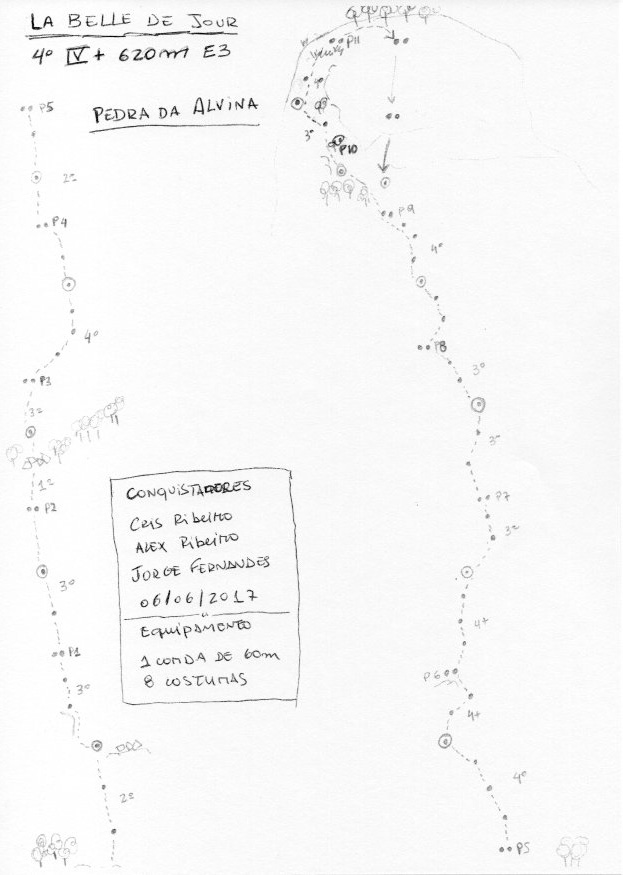 LA BELLE DE JOUR
4º IV + 620m E3
PEDRA DA ALVINA
P5
2º
P4
4º
P3
3º
1º
P2
3º
P1
3º
2º
CONQUISTADORES
CRIS RIBEIRO
ALEX RIBEIRO
JORGE FERNANDES
06/06/2017
EQUIPAMENTO
1 CORDA DE 60m
8 COSTURAS
P11
4º
3º
P10
P9
4º
P8
3º
3º
P7
3º
4+
P6
4+
4º
P5